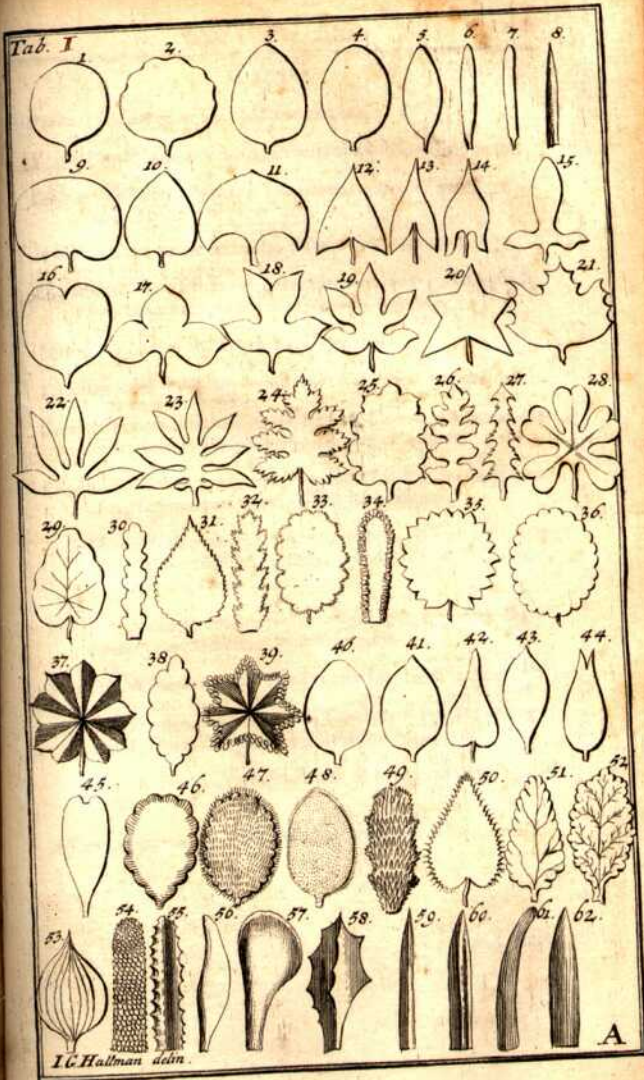 Tab. I
1. 2. 3. 4. 5. 6. 7. 8.
9. 10. 11. 12. 13. 14. 15.
16. 17. 18. 19. 20. 21.
22. 23. 24. 25. 26. 27. 28.
29. 30. 31. 32. 33. 34. 35. 36.
37. 38. 39. 40. 41. 42. 43. 44.
45. 46. 47. 48. 49. 50. 51. 52
53. 54. 55. 56. 57. 58. 59. 60. 61. 62.
I G Hallman delin.
A